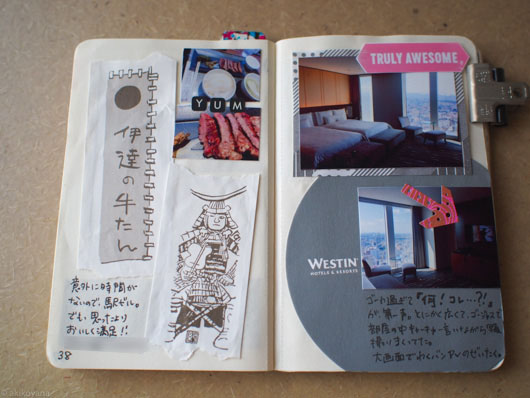 伊達の牛たん
YUM
意外に時間が
ないので、駅ビル。
でも、思ったより
おいしく満足!!
38
TRULY AWESOME
WESTIN
HOTELS & RESORTS
ゴート過ぎて「何!コレ…?!」
が、第一声。とにかく広くて、ゴージャスで
部屋の中キャーキャー言いながら
撮りまくってた。
大画面でわくパンTVのぜいたく。